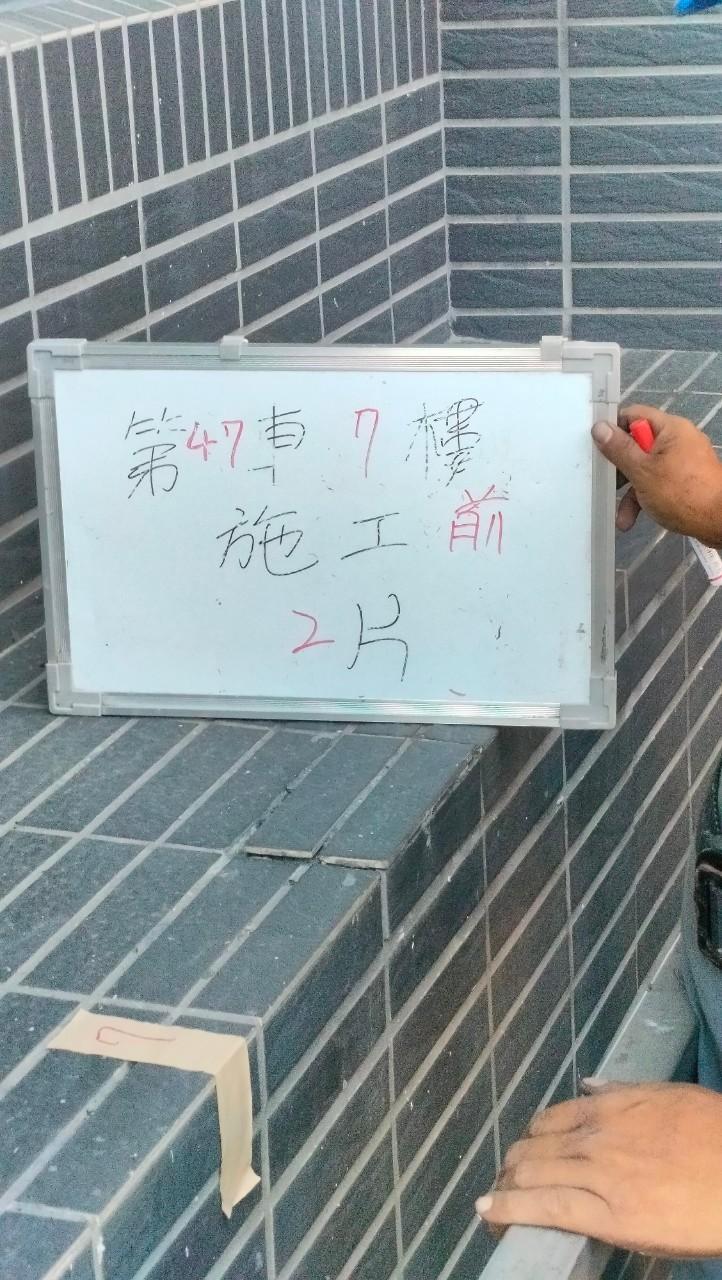 第47車7樓
施工前
2片
1